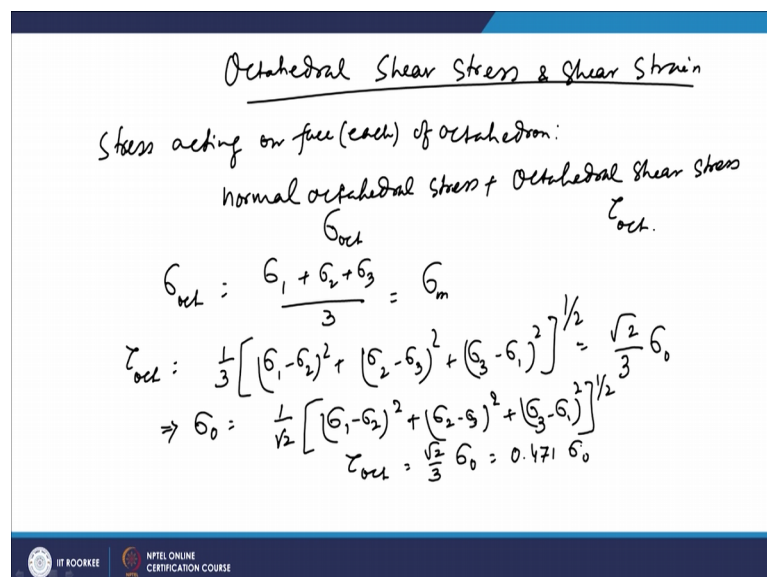 Octahedral Shear Stress & Shear Strain
Stress acting on face (each) of octahedron:
normal octahedral stress + Octahedral Shear Stress
σ_oct          τ_oct.
σ_oct : (σ₁ + σ₂ + σ₃)/3 = σ_m
τ_oct : 1/3 [(σ₁-σ₂)² + (σ₂-σ₃)² + (σ₃-σ₁)²]^1/2 = √2/3 σ₀
⇒ σ₀ = 1/√2 [(σ₁-σ₂)² + (σ₂-σ₃)² + (σ₃-σ₁)²]^1/2
τ_oct = √2/3 σ₀ = 0.471 σ₀
IIT ROORKEE
NPTEL ONLINE
CERTIFICATION COURSE